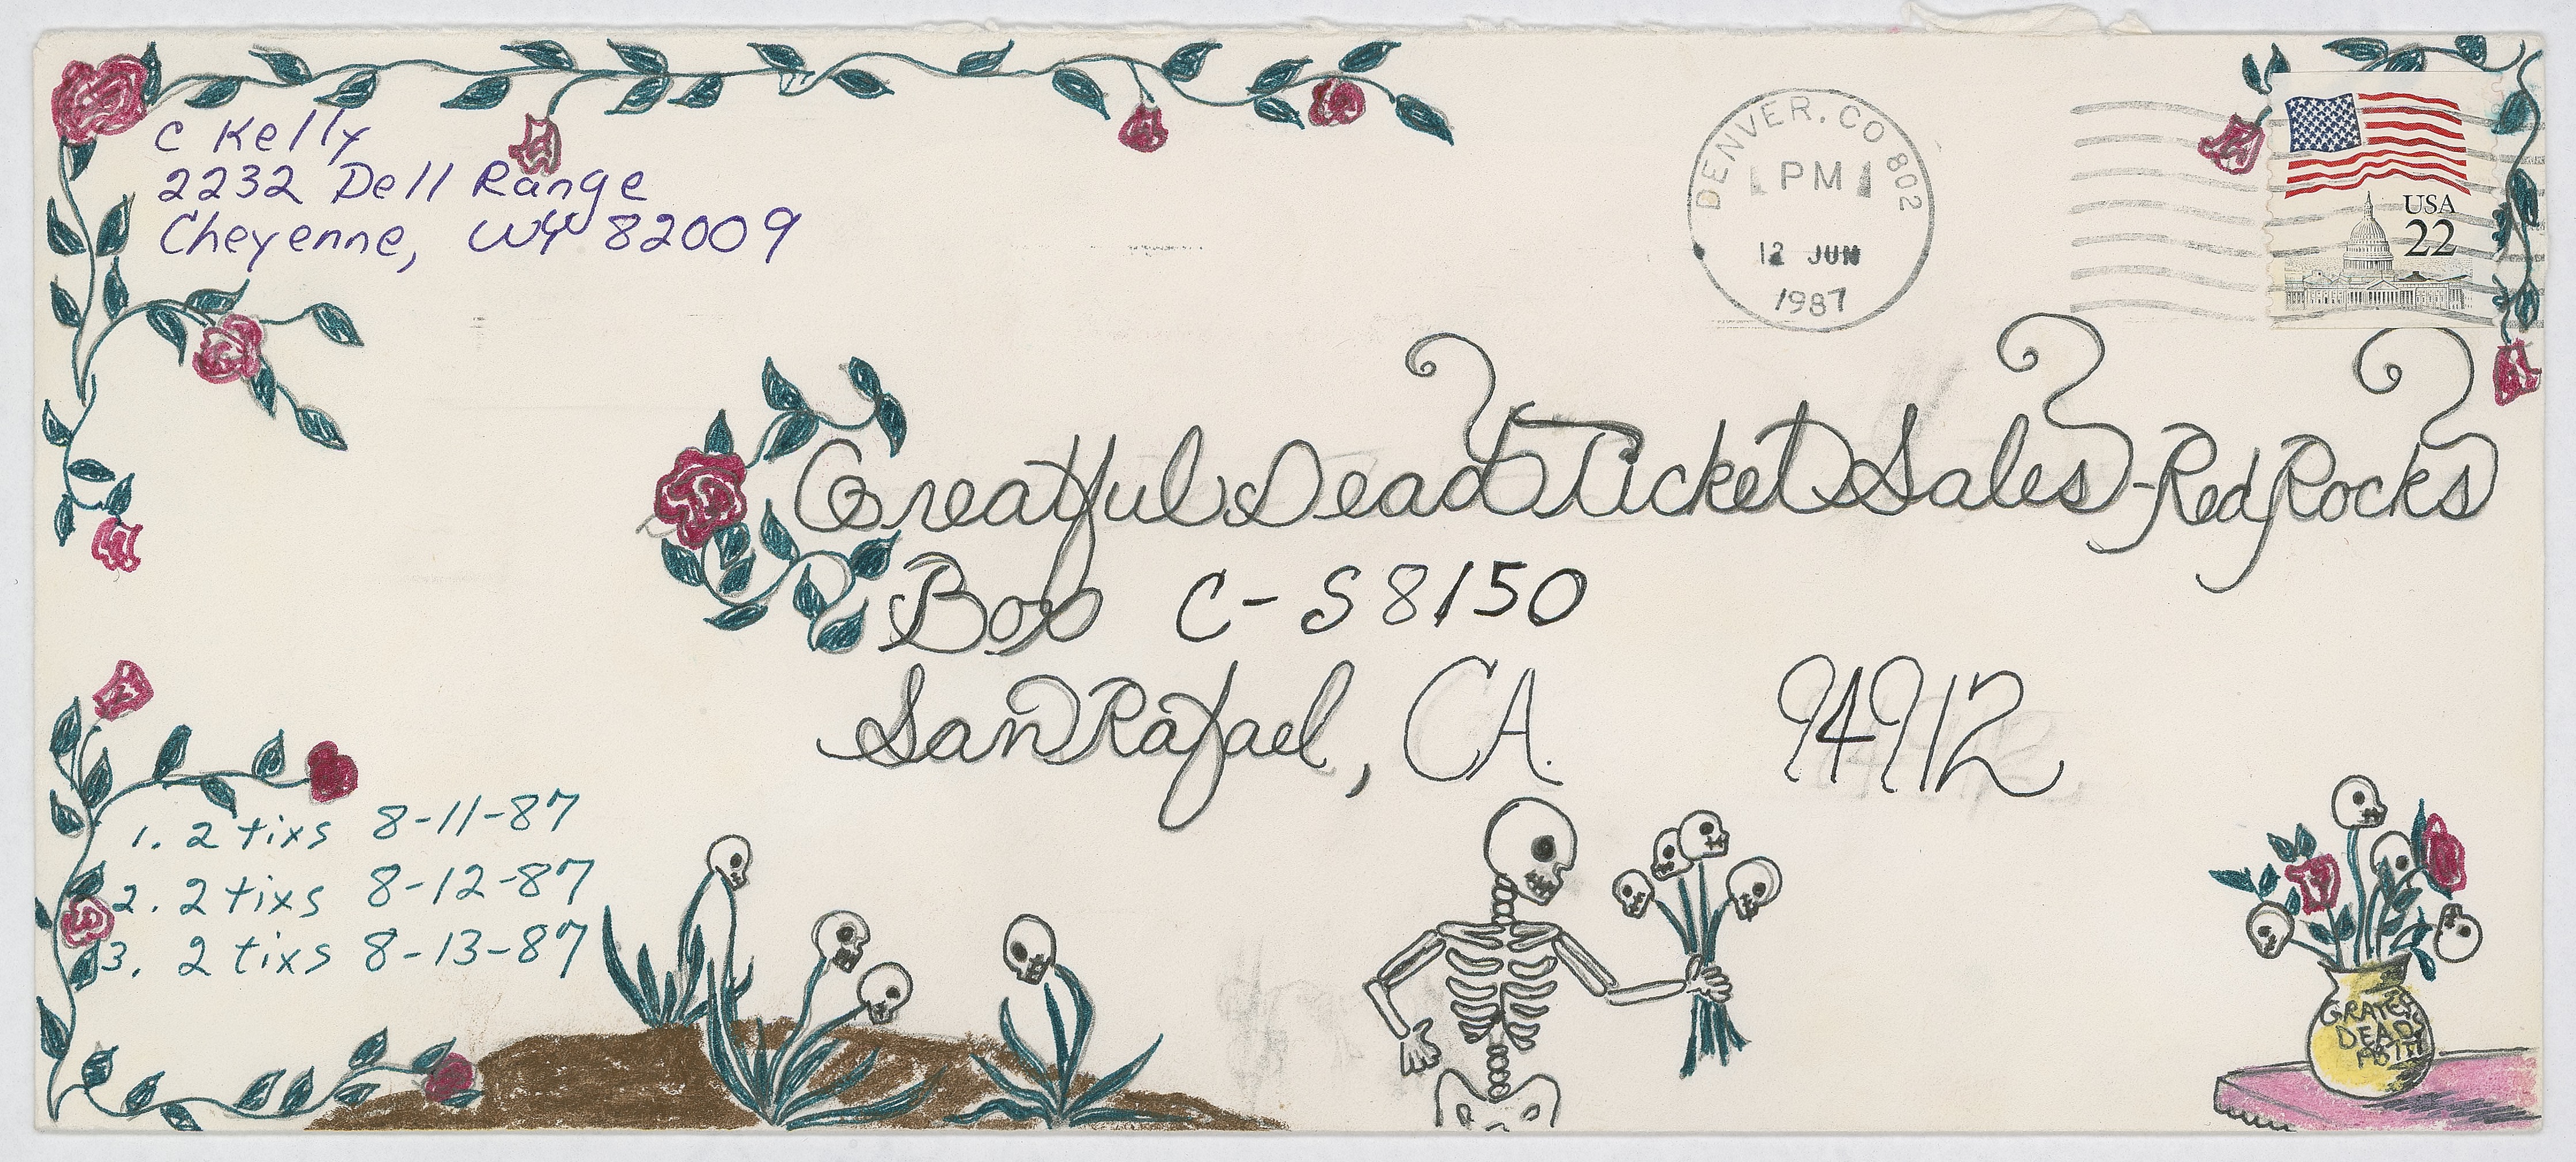 C Kelly
2232 Dell Range
Cheyenne, WY 82009
DENVER, CO 802
PM
12 JUN
1987
USA
22
Greatful Dead Ticket Sales - Red Rocks
Box C-S8150
San Rafael, CA. 94912
1. 2 tixs 8-11-87
2. 2 tixs 8-12-87
3. 2 tixs 8-13-87
DEAD